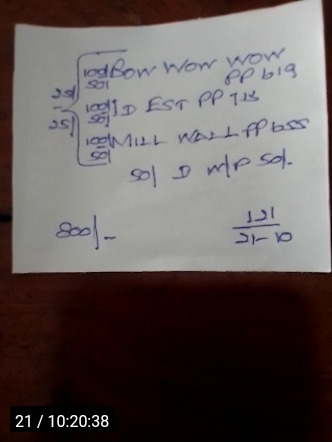 25/- 25/- 100/ 50/ BOW WOW WOW
PP b19
100/ 50/ ID EST PP 7B
100/ 50/ MILL WALL PP b55
50/ D M/P 50/-
800/-
121
21-10
21 / 10:20:38